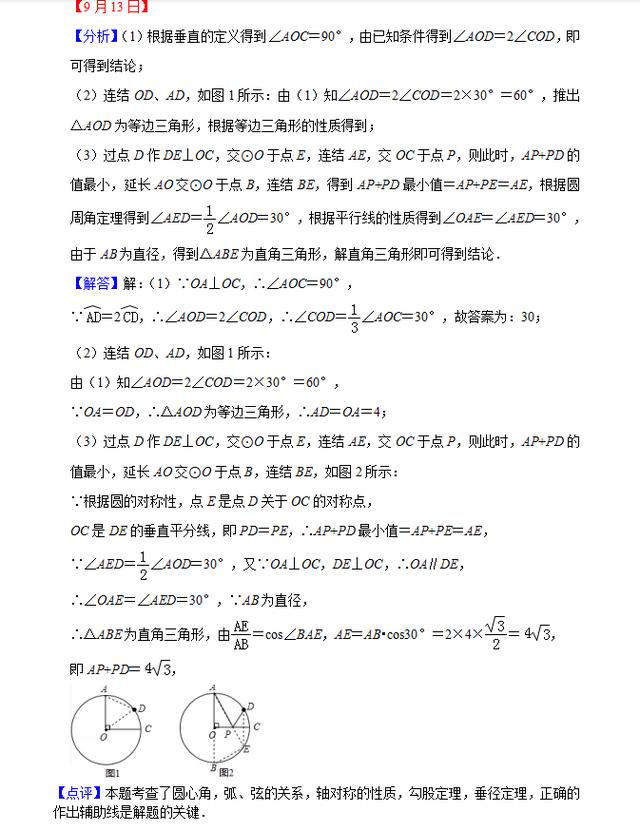 【9 月 13 日】
【分析】(1)根据垂直的定义得到∠AOC=90°,由已知条件得到∠AOD=2∠COD,即
可得到结论;
(2)连结 OD、AD,如图 1 所示:由(1)知∠AOD=2∠COD=2×30°=60°,推出
△AOD 为等边三角形,根据等边三角形的性质得到;
(3)过点 D 作 DE⊥OC,交⊙O 于点 E,连结 AE,交 OC 于点 P,则此时,AP+PD 的
值最小,延长 AO 交⊙O 于点 B,连结 BE,得到 AP+PD 最小值=AP+PE=AE,根据圆
周角定理得到∠AED=1/2∠AOD=30°,根据平行线的性质得到∠OAE=∠AED=30°,
由于 AB 为直径,得到△ABE 为直角三角形,解直角三角形即可得到结论.
【解答】解:(1)∵OA⊥OC,∴∠AOC=90°,
∵AD⌒=2CD⌒,∴∠AOD=2∠COD,∴∠COD=1/3∠AOC=30°,故答案为:30;
(2)连结 OD、AD,如图 1 所示:
由(1)知∠AOD=2∠COD=2×30°=60°,
∵OA=OD,∴△AOD 为等边三角形,∴AD=OA=4;
(3)过点 D 作 DE⊥OC,交⊙O 于点 E,连结 AE,交 OC 于点 P,则此时,AP+PD 的
值最小,延长 AO 交⊙O 于点 B,连结 BE,如图 2 所示:
∵根据圆的对称性,点 E 是点 D 关于 OC 的对称点,
OC 是 DE 的垂直平分线,即 PD=PE,∴AP+PD 最小值=AP+PE=AE,
∵∠AED=1/2∠AOD=30°,又∵OA⊥OC,DE⊥OC,∴OA∥DE,
∴∠OAE=∠AED=30°,∵AB 为直径,
∴△ABE 为直角三角形,由AE/AB=cos∠BAE,AE=AB•cos30°=2×4×√3/2=4√3,
即 AP+PD=4√3,
A D O C 图1
A D O P C E B 图2
【点评】本题考查了圆心角,弧、弦的关系,轴对称的性质,勾股定理,垂径定理,正确的
作出辅助线是解题的关键.